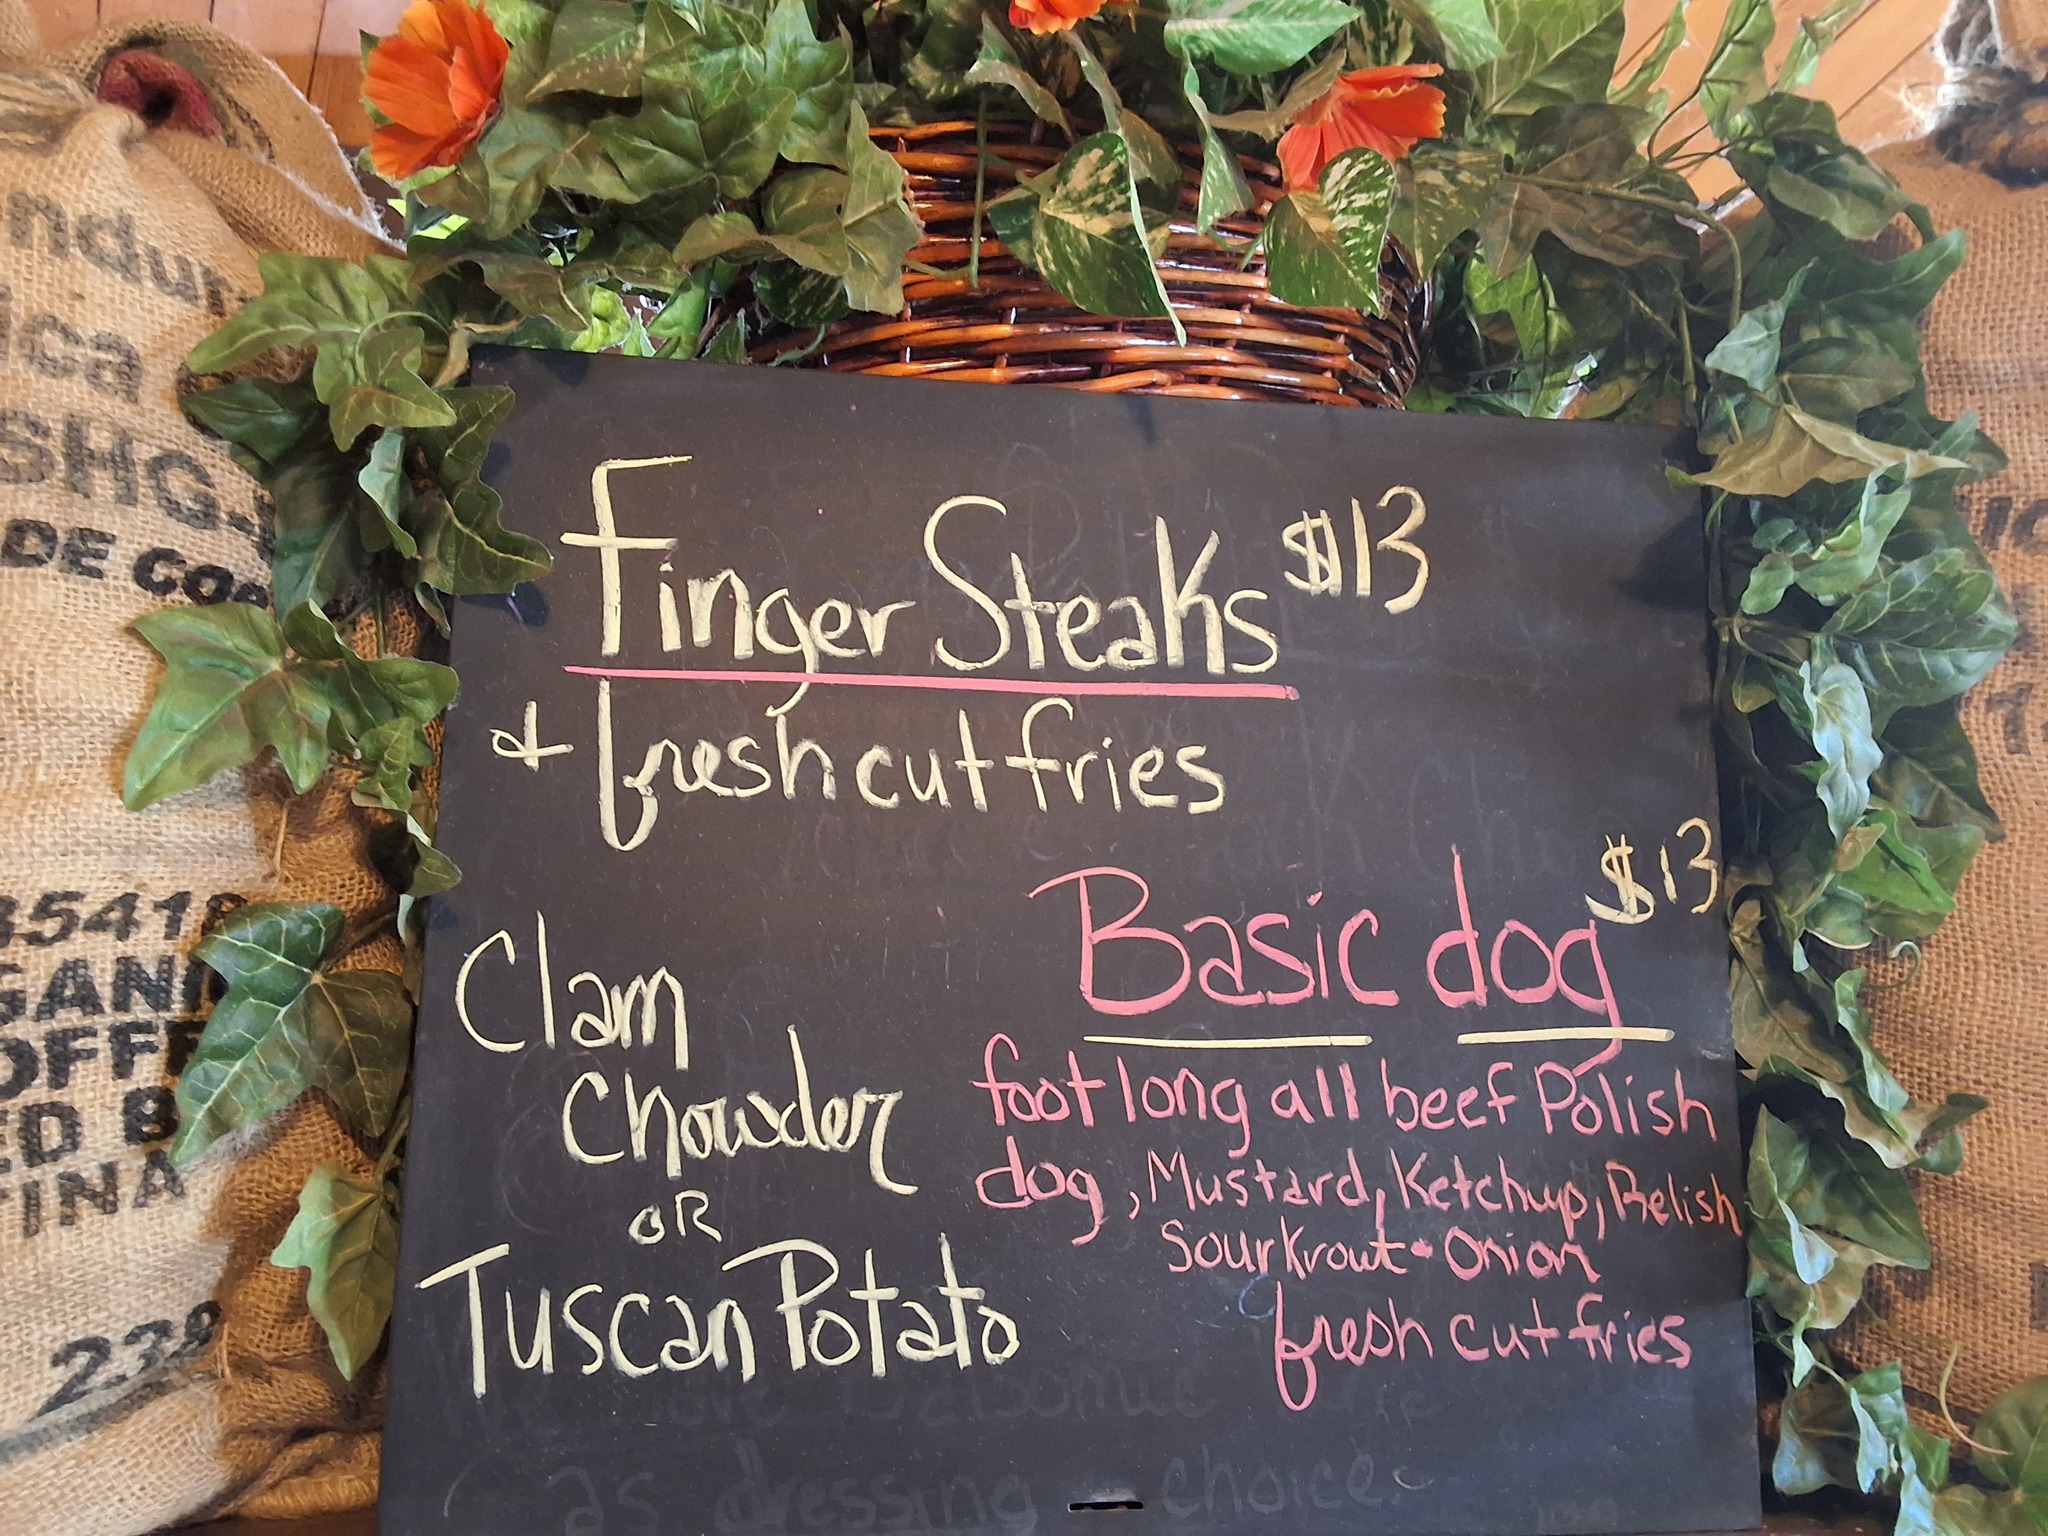 Finger Steaks $13
& fresh cut fries
Clam
Chowder
OR
Tuscan Potato
$13
Basic dog
foot long all beef Polish
dog, Mustard, Ketchup, Relish
Sourkrout • Onion
fresh cut fries
as dressing choice.
SHG
DE CO
45418
OFF
ED B
TINA